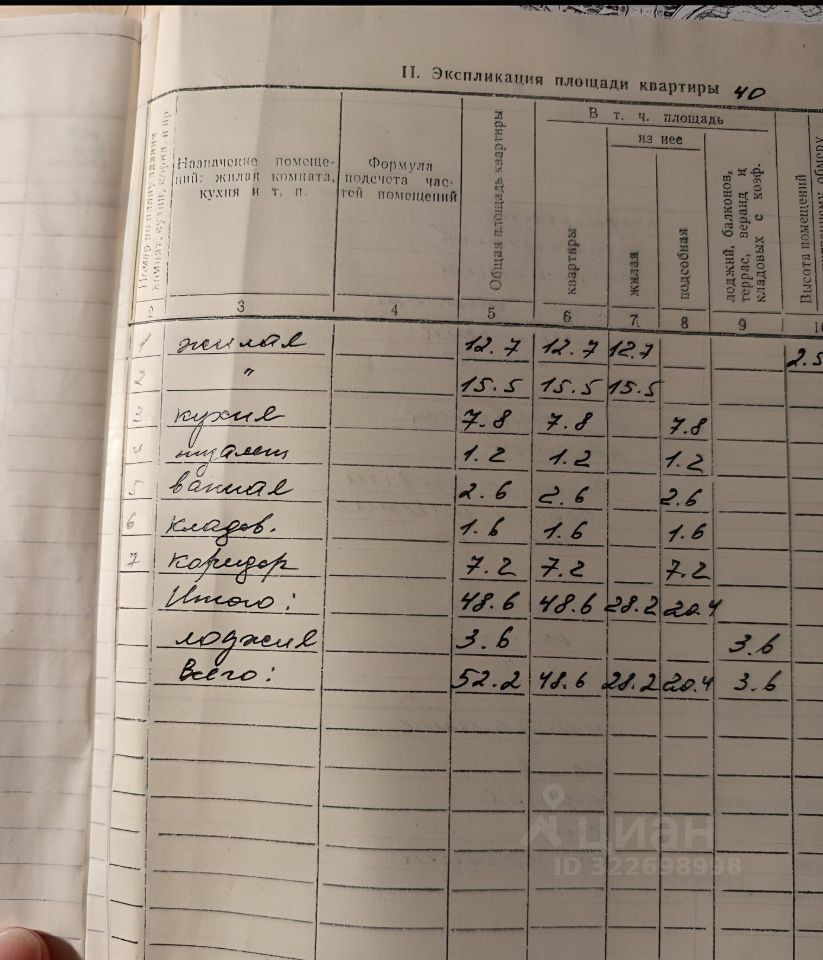 II. Экспликация площади квартиры 40
Номер по плану здания
комнат, кухни, корид. и пр
Назначение помеще-
ний: жилая комната,
кухня и т. п.
Формула
подсчета час-
тей помещений
Общая площадь квартиры
В т. ч. площадь
из нее
квартиры
жилая
подсобная
лоджий, балконов,
террас, веранд и
кладовых с коэф.
Высота помещений
3 4 5 6 7 8 9 10
1 жилая 12.7 12.7 12.7 2.5
2 " 15.5 15.5 15.5
3 кухня 7.8 7.8 7.8
4 туалет 1.2 1.2 1.2
5 ванная 2.6 2.6 2.6
6 кладов. 1.6 1.6 1.6
7 коридор 7.2 7.2 7.2
Итого: 48.6 48.6 28.2 20.4
лоджия 3.6 3.6
Всего: 52.2 48.6 28.2 20.4 3.6
циан
ID 322698998